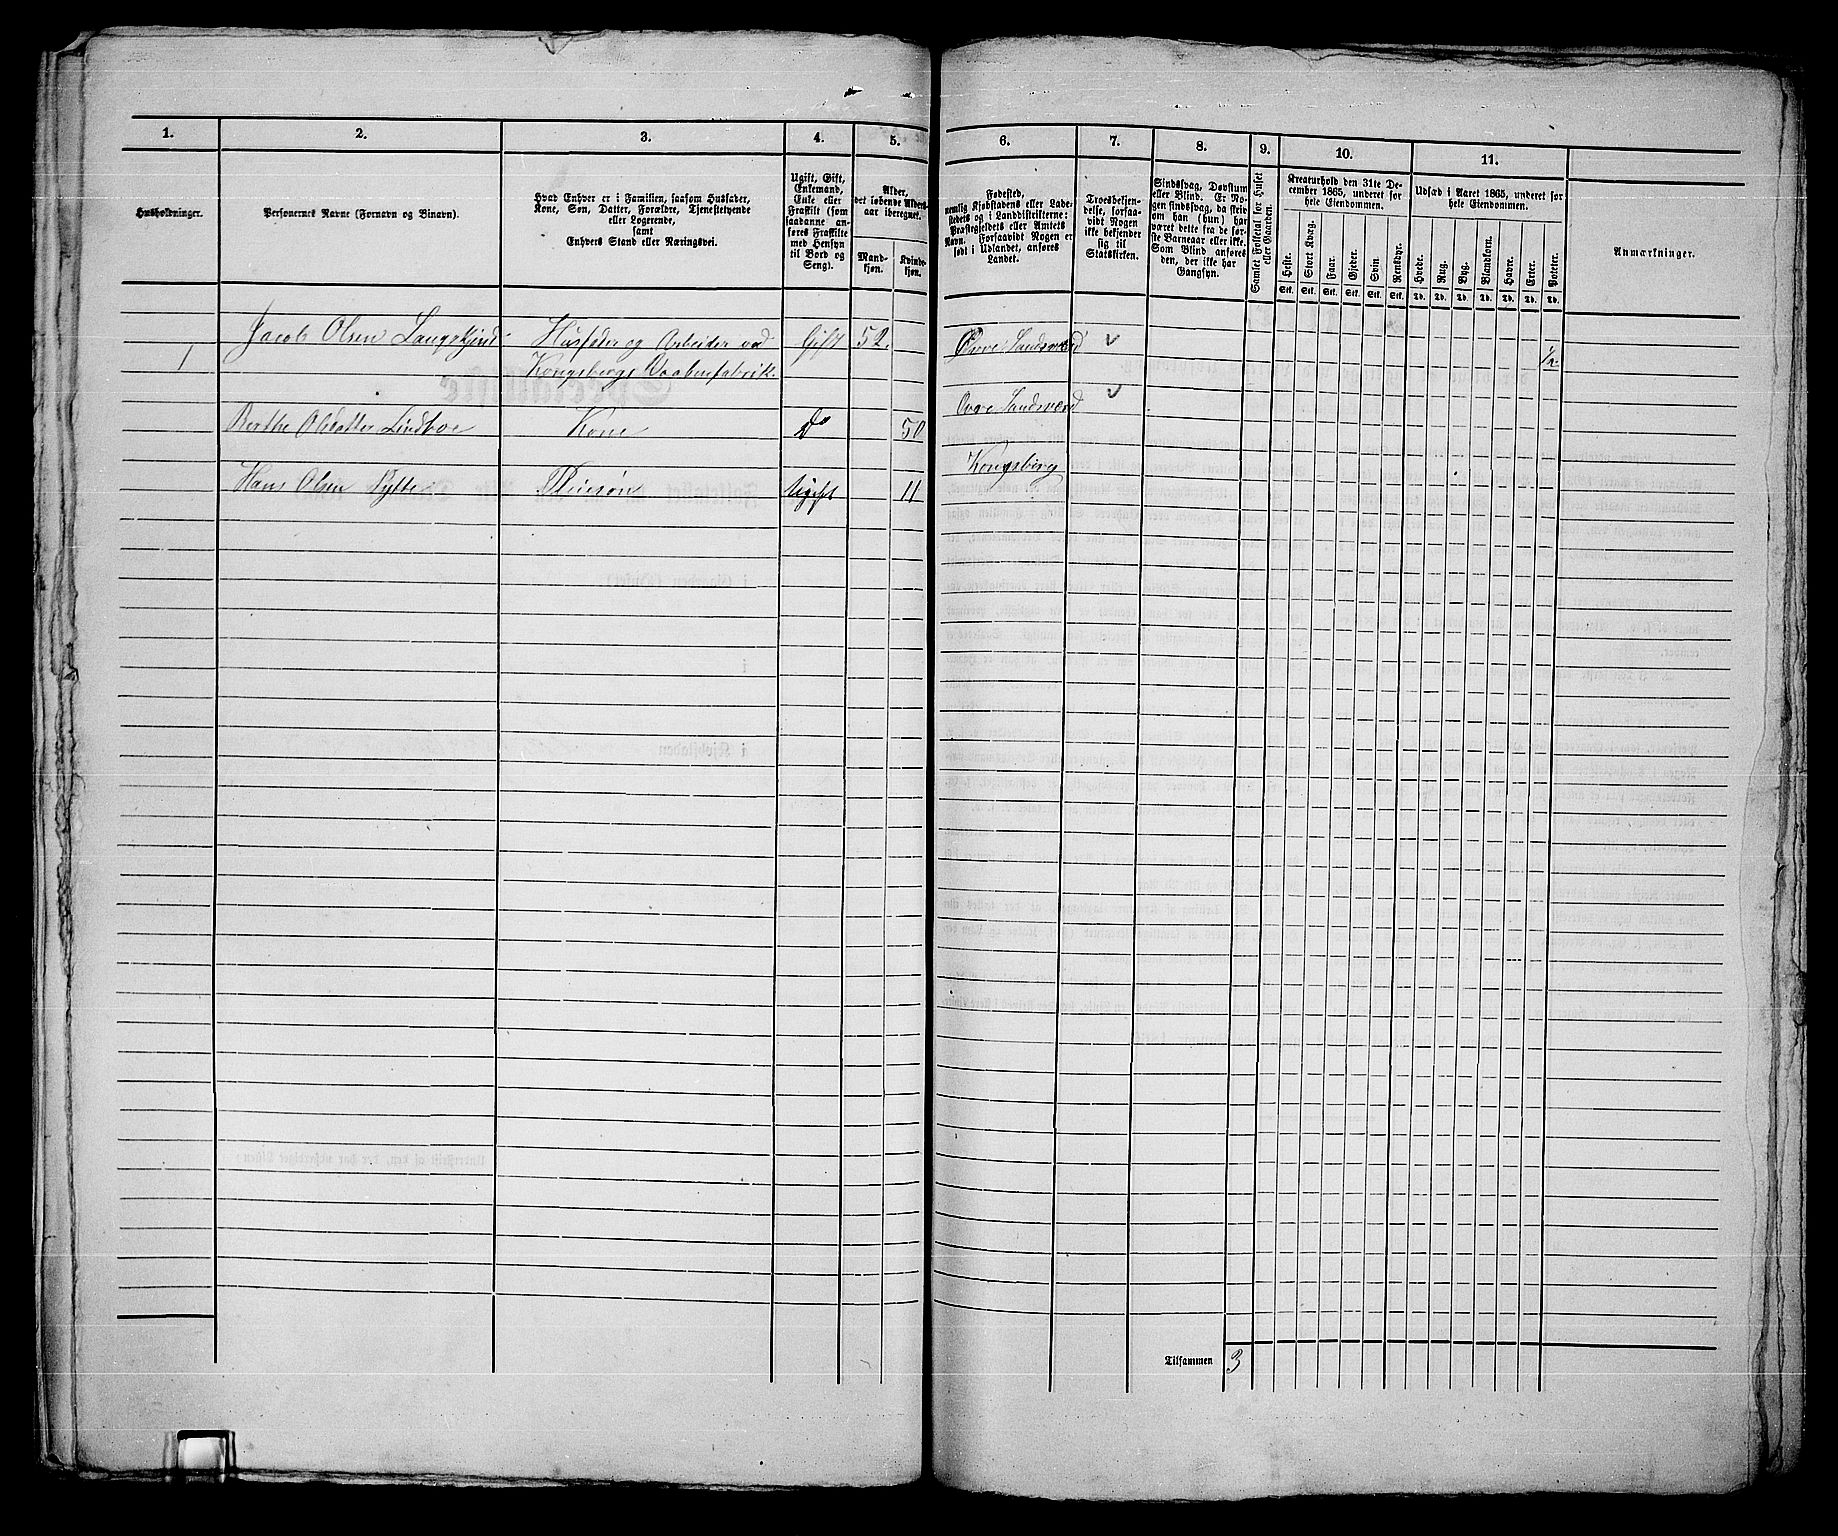 1. 2. 3. 4. 5. 6. 7. 8. 9. 10. 11.
Husholdninger.
Personernes Navne (Fornavn og Binavn).
Hvad Enhver er i Familien, saasom Husfader,
Kone, Søn, Datter, Forældre, Tjenstetyende
eller Logerende,
samt
Enhvers Stand eller Næringsvei.
Ugift, Gift,
Enkemand,
Enke eller
Fraskilt (som
saadanne an-
føres Fraskilte
med Hensyn
til Bord og
Seng).
Alder,
det løbende Alders-
aar iberegnet.
Mand-
kjøn.
Kvinde-
kjøn.
Fødested,
nemlig Kjøbstadens eller Lade-
stedets og i Landdistrikterne:
Præstegjeldets eller Amtets
Navn. Forsaavidt Nogen er
født i Udlandet, anføres
Landet.
Troesbekjen-
delse, forsaa-
vidt Nogen
ikke bekjender
sig til
Statskirken.
Sindssvag, Døvstum
eller Blind. Er No-
gen sindssvag, da steiv
om han (hun) har
været dette fra de før-
ste Barneaar eller ikke.
Som Blind anføres
den, der ikke har
Gangsyn.
Samlet Folketal for Huset
eller Gaarden.
Kreaturhold den 31te De-
cember 1865, underet for
hele Eiendommen.
Heste. Stort Kvæg. Faar. Gjeder. Svin. Rensdyr.
Stk. Stk. Stk. Stk. Stk. Stk.
Udsæd i Aaret 1865, underet for
hele Eiendommen.
Hvede. Rug. Byg. Blandkorn. Havre. Erter. Poteter.
Td. Td. Td. Td. Td. Td. Td.
Anmærkninger.
Jacob Olsen Langskjind Husfader og Arbeider ved Gift 52. Øvre Sandsværd
1 Kongsbergs Vaabenfabrik. 1/2
Berthe Olsdatter Lindboe Kone do 50 Øvre Sandsværd
Hans Olsen Pleiesøn Ugift 11 Kongsberg
Tilsammen 3